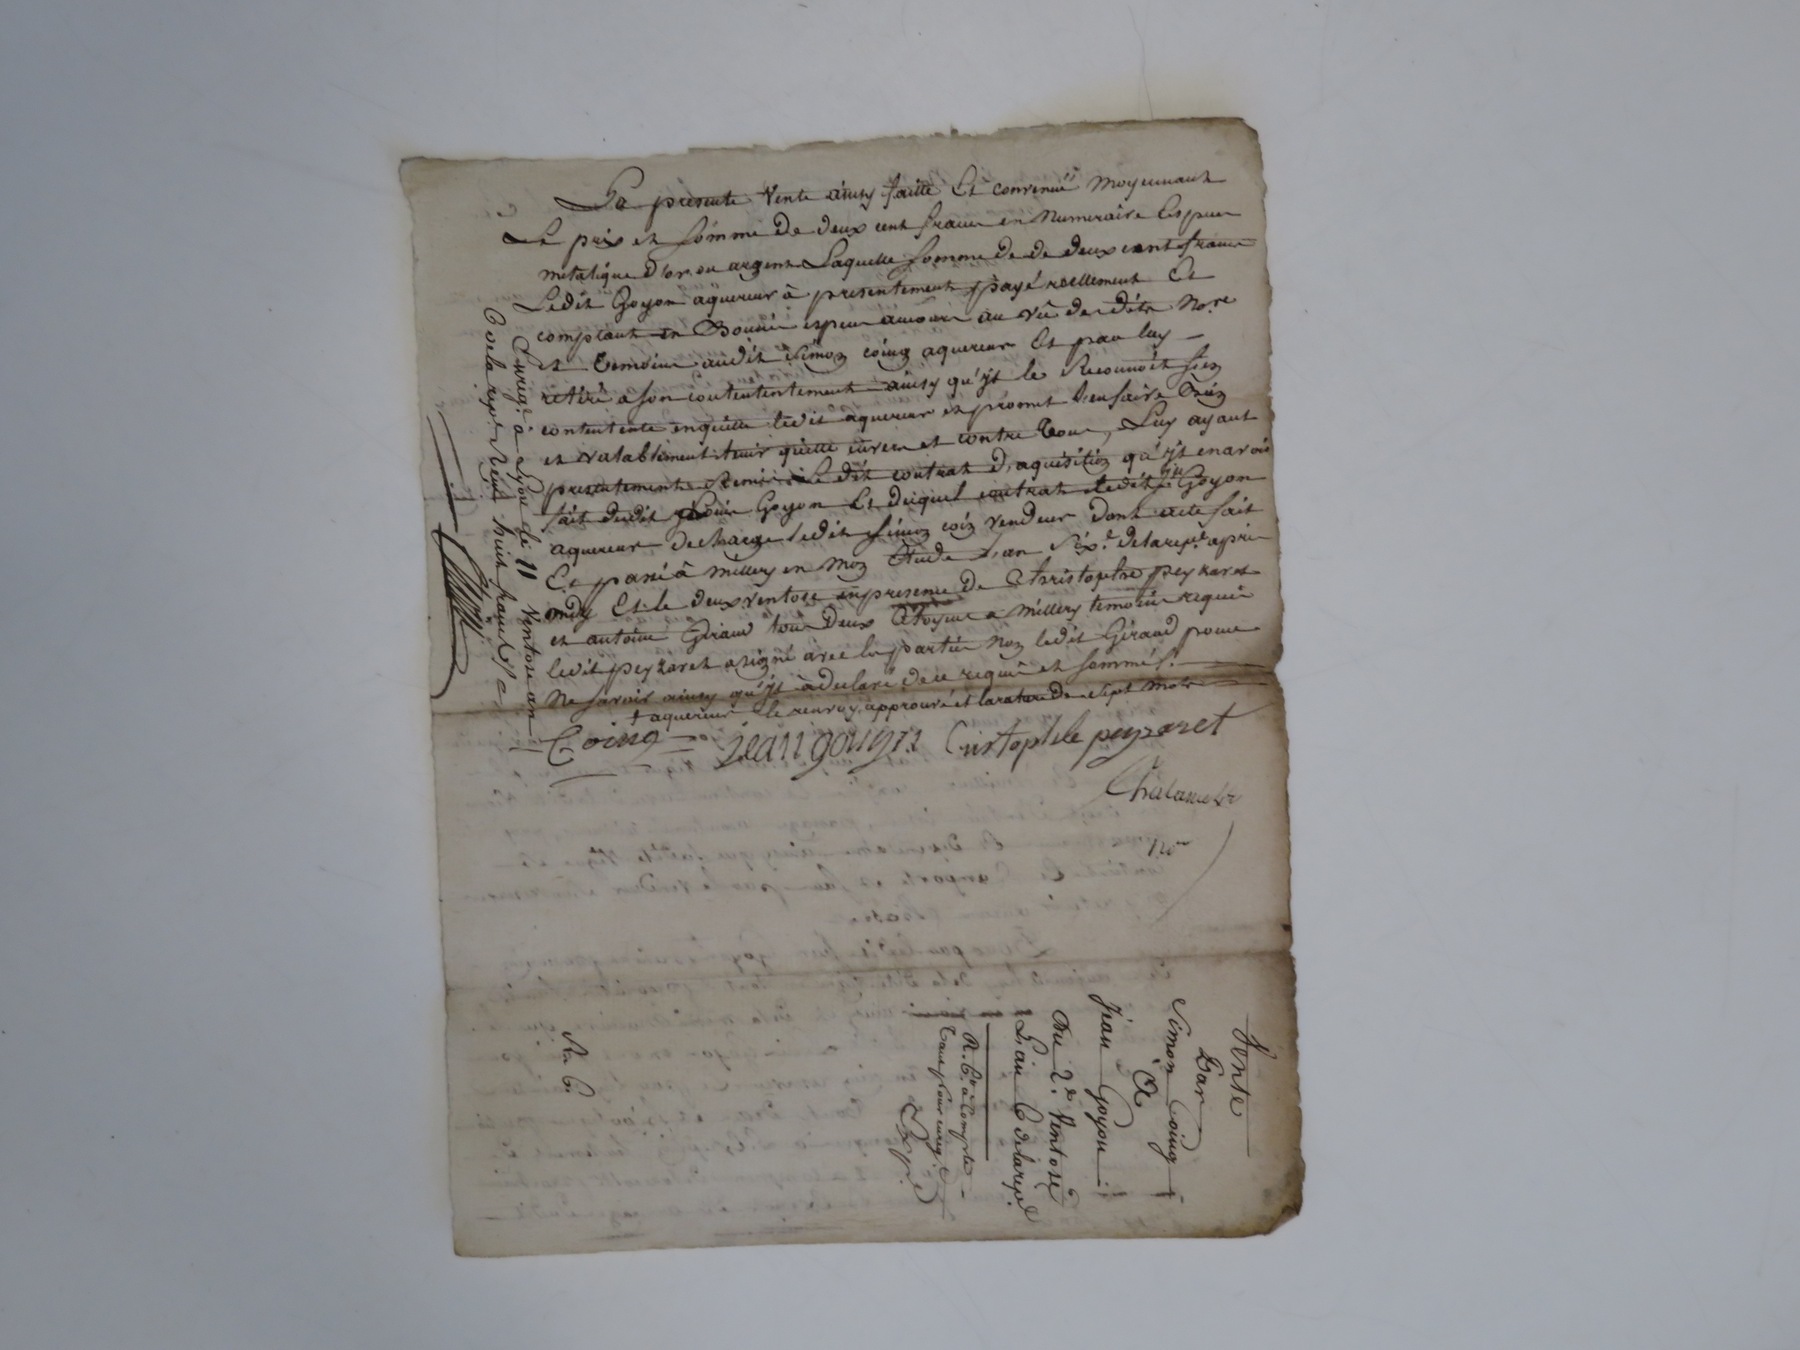 La presente Vente ainsy faitte Et convenuë moyennant
Le prix et somme de deux cent francs en Numeraire Espece
metalique d'or ou argent Laquelle somme de de deux cent francs
Ledit Goyon aquereur à presentement payé reellement Et
comptant en Bonnes especes aucours au vû desdits No.re
et temoins audit Simon coing aquereur Et par luy
retiré a son contententement ainsy qu'jl le Reconnoit s'en
contentente enquitte ledit aquereur et promet l'en faire bien
et valablement tenir quitte envers et contre tous, Luy ayant
presentement Remis Ledit contrat d'aquisition qu'jl en avoit
fait dudit Goyon Et duquel contrat ledit Jn Goyon
aquereur decharge ledit Simon coin vendeur dont acte fait
Et passé à millery en mon Etude L'an Six.e delarep.e apres
midy Et le deux ventose enpresence de Christophe peyzaret
et antoine Giraud tous deux Citoyens a millery temoins requis
ledit peyzaret a signé avec les parties Non ledit Giraud pour
Ne savoir ainsy qu'jl à declaré de ce requis et sommés.
+ aquereur le renvoy approuvé et la rature de sept mots
Coing jean gougon Cristophle peyzaret
Chalamel
Nore
Enregé à Lyon le 11 Ventose an
6 de la rep. Reçu huit francs
Vente
Par
Simon Coing
A
Jean Goyon
Du 2.e Ventose
L'an 6 delarepe.
R. 6# à Compte
tant pour enreg. &
Exped.
R. 6.